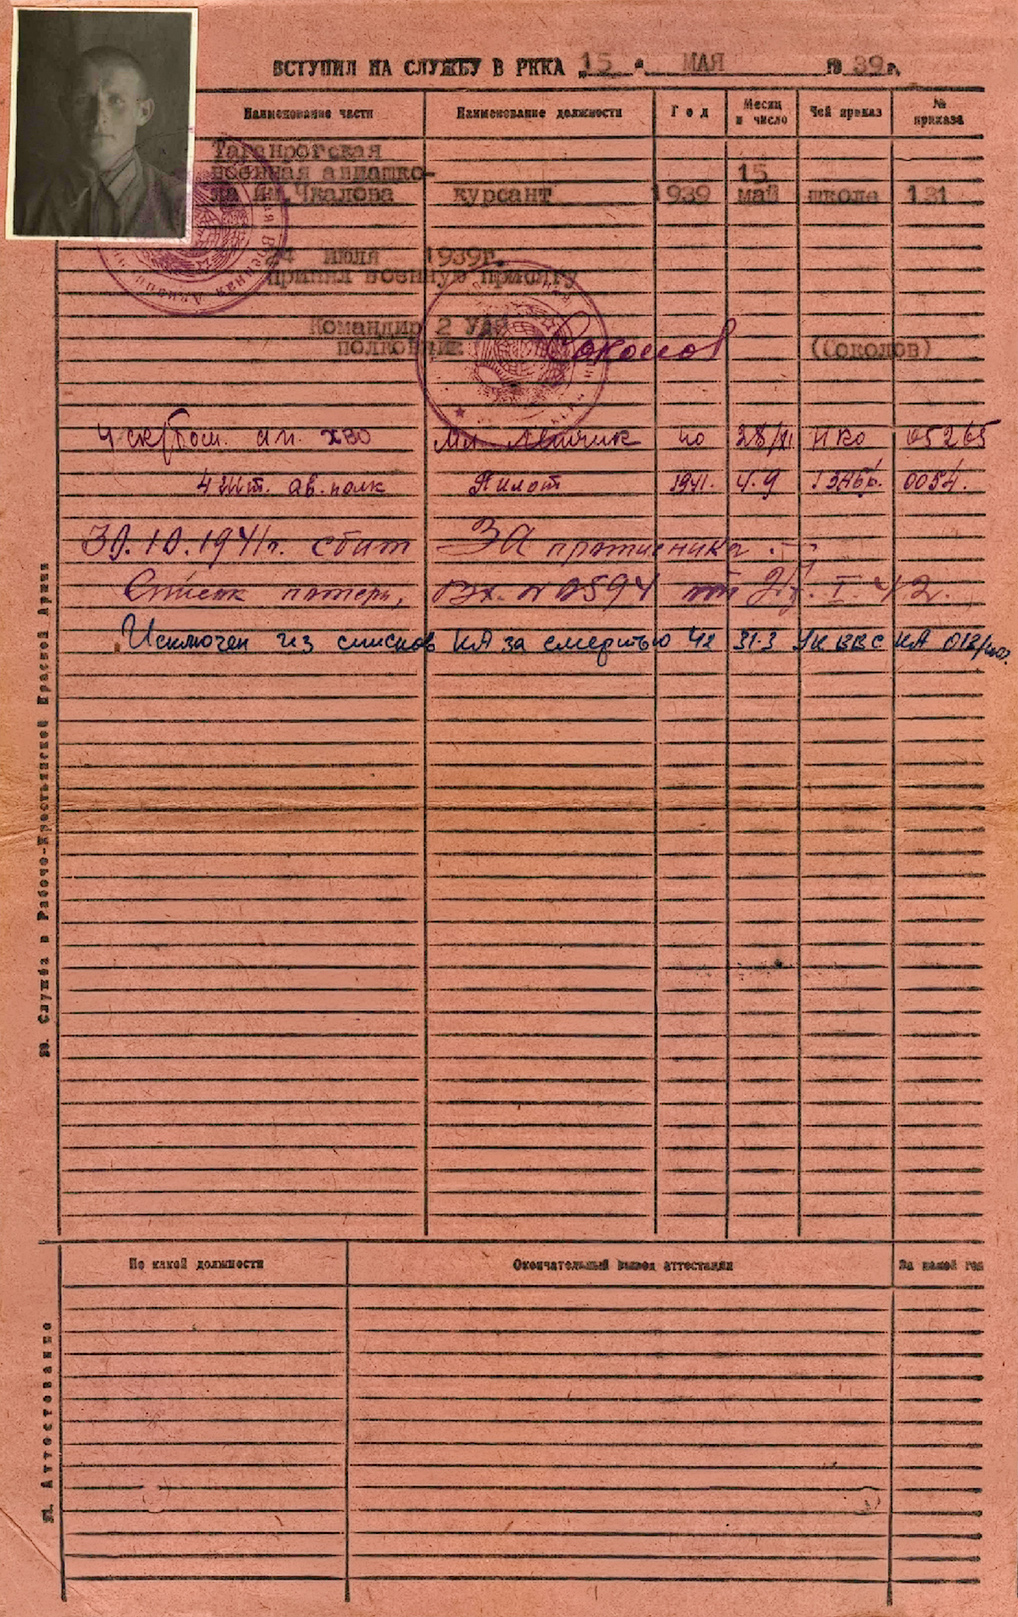 ВСТУПИЛ НА СЛУЖБУ В РККА „15 " МАЯ 19 39 г.
Наименование части Наименование должности Год Месяц и число Чей приказ № приказа
Таганрогская
военная авиашко- 15
ла им.Чкалова курсант 1939 май школе 131
24 июля 1939г.
принял военную присягу
Командир 2 УАЭ
полковник Соколов (Соколов)
4 ск/бом. ап. ХВО Мл. летчик 40 28/XI НКО 05265
4 Шт. ав. полк Пилот 1941. 4.9 1 ЗАбр. 0054.
30.10.1941г. сбит ЗА противника.
Список потерь, Вх. № 0594 от I. 42.
Исключен из списков КА за смертью 42 31.3 УК ВВС КА 018/
30. Служба в Рабоче-Крестьянской Красной Армии
По какой должности Окончательный вывод аттестации За какой год
31. Аттестование